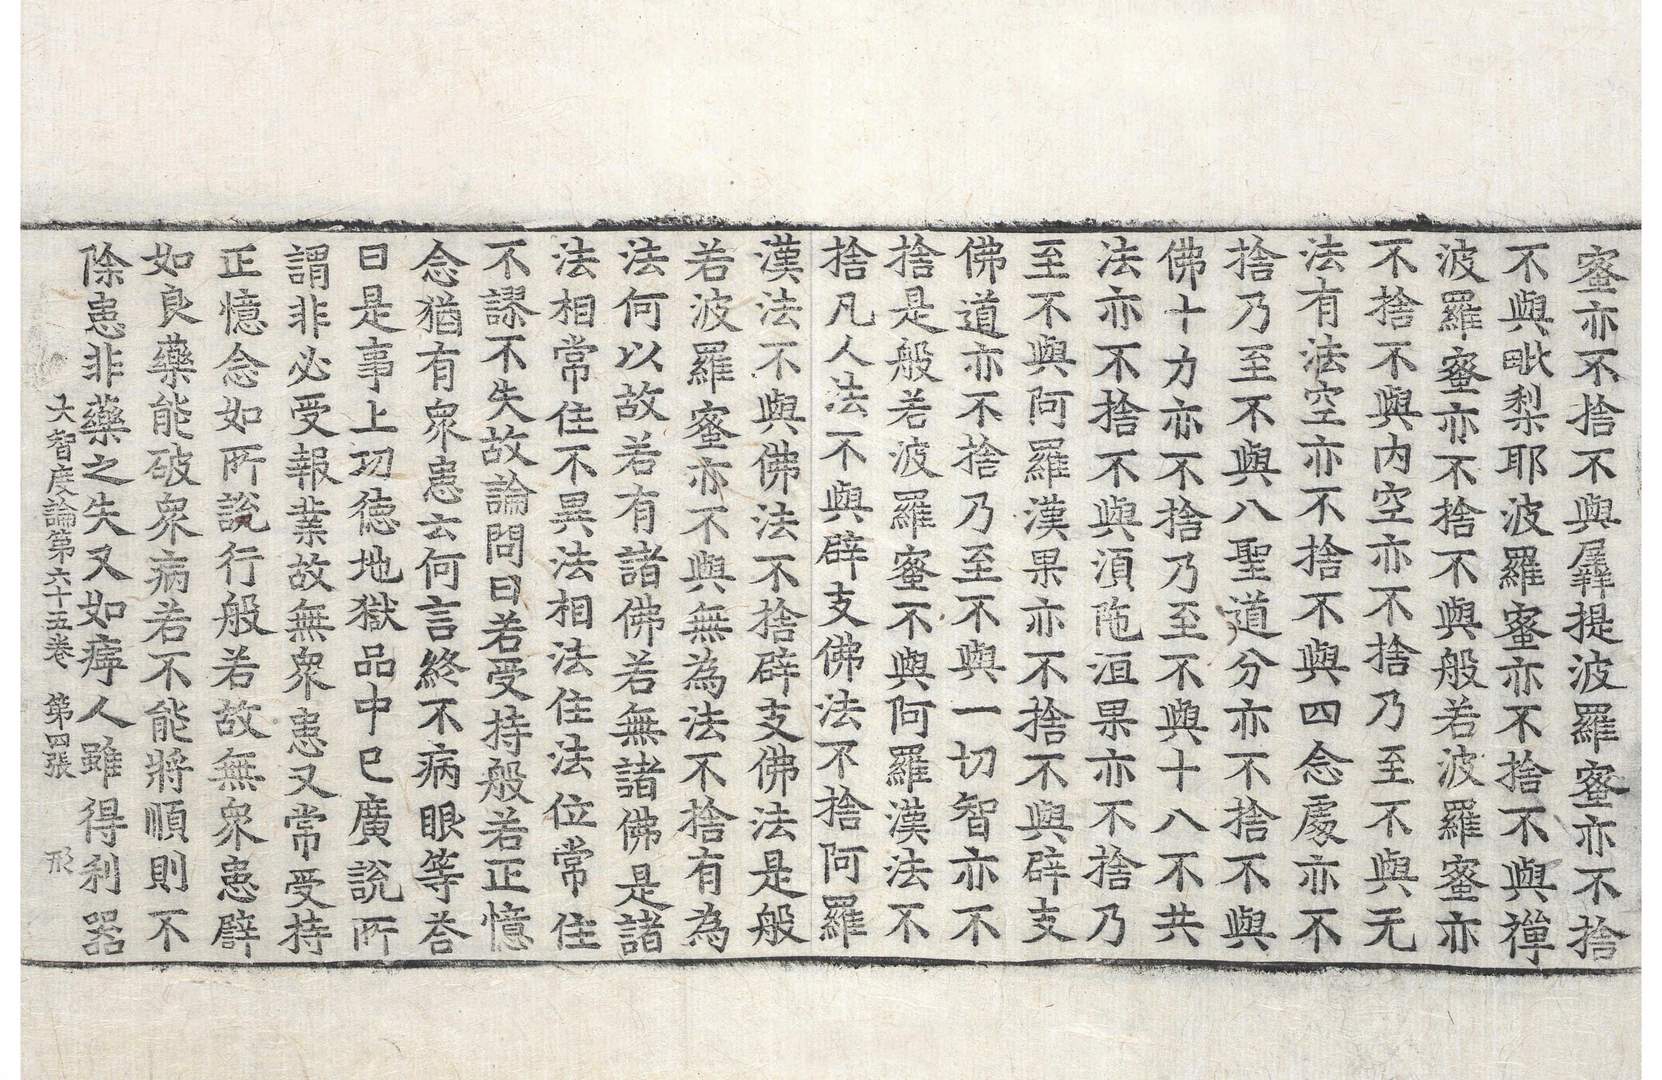 蜜亦不捨不與羼提波羅蜜亦不捨
不與毗梨耶波羅蜜亦不捨不與禪
波羅蜜亦不捨不與般若波羅蜜亦
不捨不與內空亦不捨乃至不與无
法有法空亦不捨不與四念處亦不
捨乃至不與八聖道分亦不捨不與
佛十力亦不捨乃至不與十八不共
法亦不捨不與須陁洹果亦不捨乃
至不與阿羅漢果亦不捨不與辟支
佛道亦不捨乃至不與一切智亦不
捨是般若波羅蜜不與阿羅漢法不
捨凡人法不與辟支佛法不捨阿羅
漢法不與佛法不捨辟支佛法是般
若波羅蜜亦不與無為法不捨有為
法何以故若有諸佛若無諸佛是諸
法相常住不異法相法住法位常住
不謬不失故論問曰若受持般若正憶
念猶有眾患云何言終不病眼等荅
曰是事上功德地獄品中已廣說所
謂非必受報業故無眾患又常受持
正憶念如所說行般若故無眾患譬
如良藥能破眾病若不能將順則不
除患非藥之失又如㾕人雖得利器
大智度論第六十五卷　第四張　形